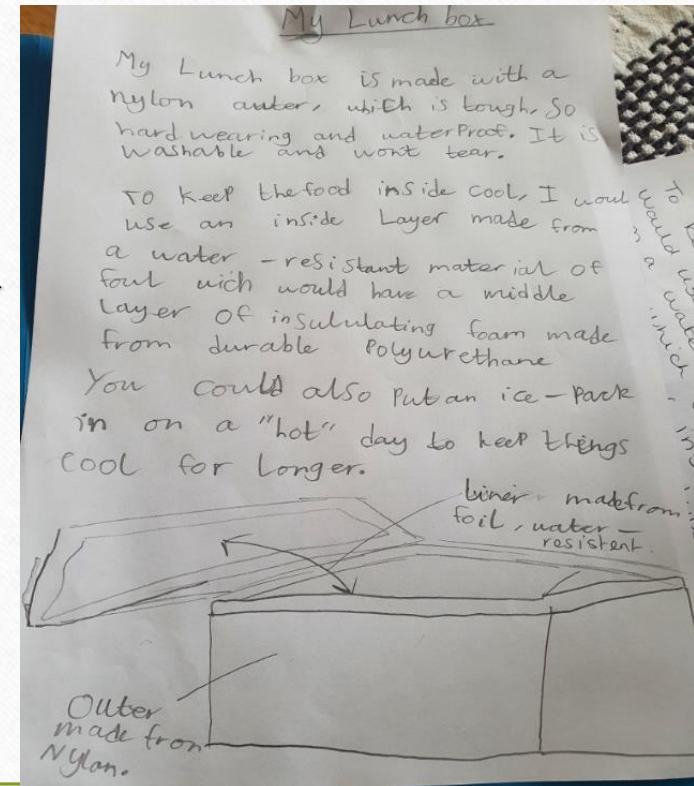 My Lunch box
My Lunch box is made with a
nylon outer, which is tough, so
hard wearing and waterProof. It is
washable and wont tear.
TO keep the food inside cool, I woul
use an inside Layer made from
a water - resistant material of
foul wich would have a middle
Layer of insululating foam made
from durable Polyurethane
You could also Put an ice - pack
in on a "hot" day to keep things
cool for longer.
Liner made from
foil, water -
resistent.
Outer
made from
Nylon.
To
would
a wate
which